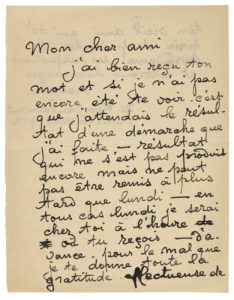 Mon cher ami
j'ai bien reçu ton
mot et si je n'ai pas
encore été te voir c'est
que j'attendais le résul-
tat d'une démarche que
j'ai faite — résultat
qui ne s'est pas produit
encore mais ne peut
pas être remis à plus
tard que lundi — en
tous cas lundi je serai
chez toi à l'heure
où tu reçois — d'a-
vance pour le mal que
je te donne toute la
gratitude de